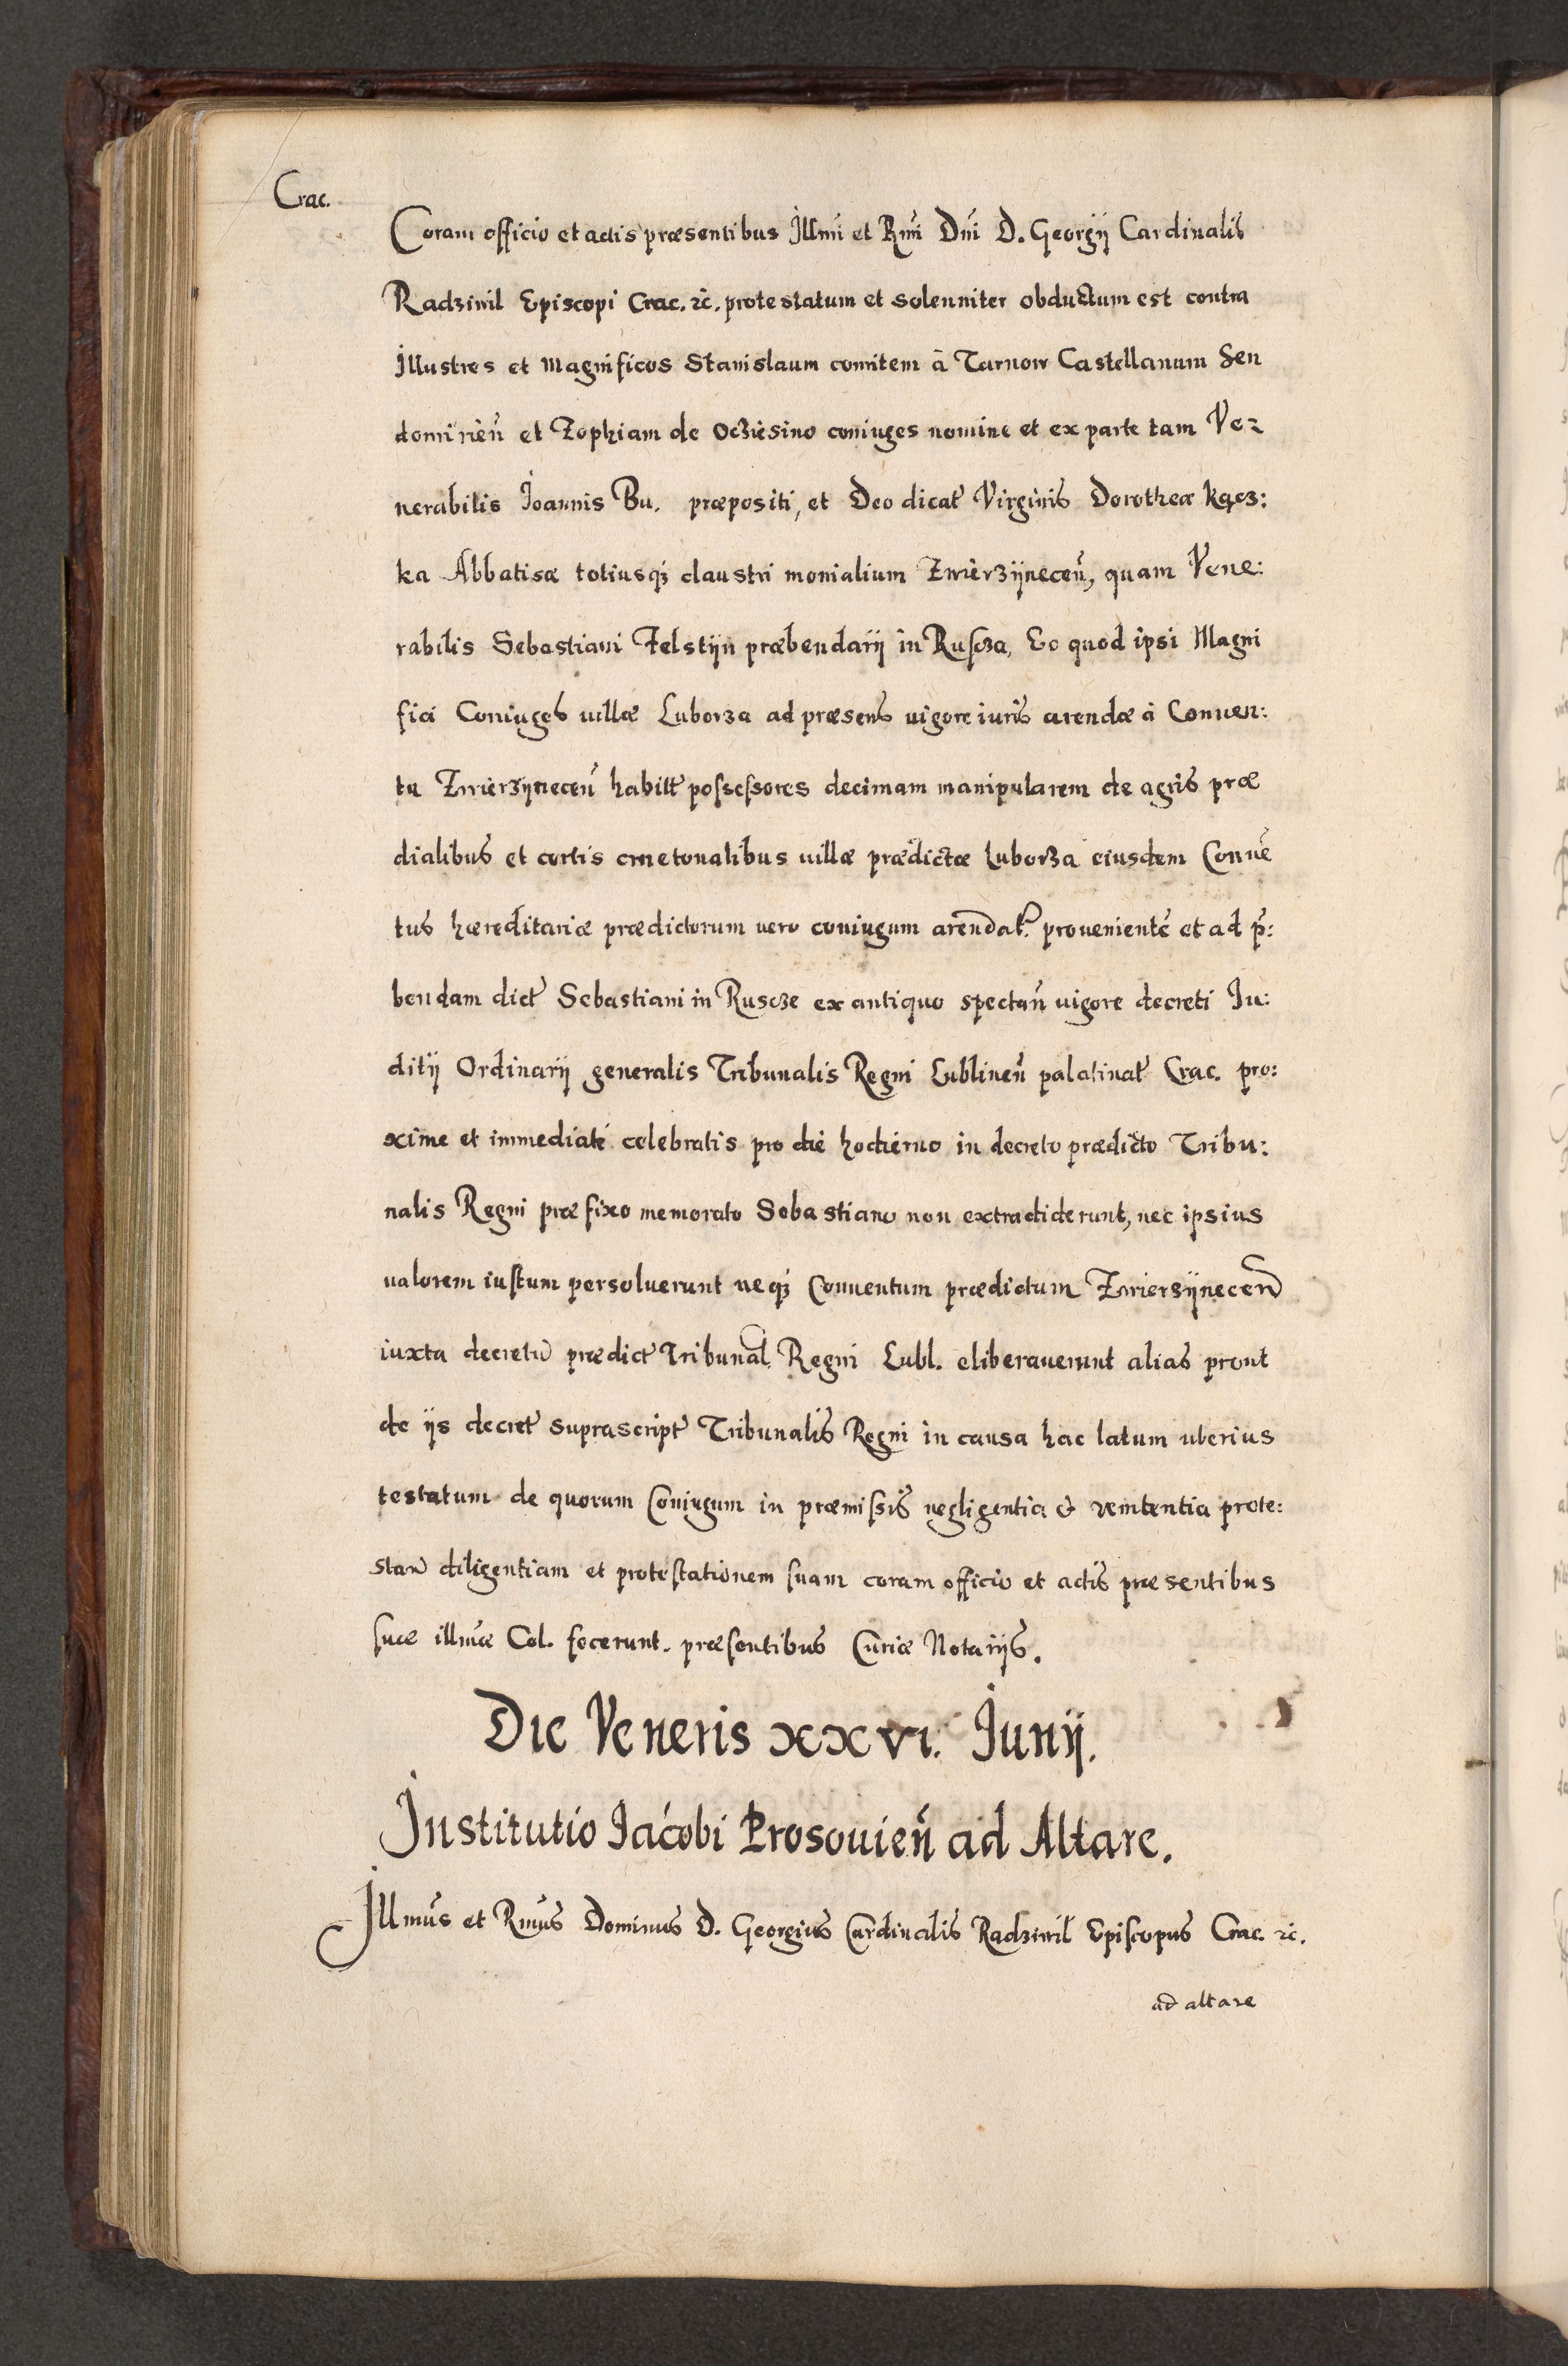 Crac.
Coram officio et actis præsentibus Illmi et Rmi Dni D. Georgij Cardinalis
Radziwil Episcopi Crac. ꝛc. protestatum et solenniter obductum est contra
Illustres et Magnificos Stanislaum comitem à Tarnow Castellanum Sen
domirień et Zophiam de Ocziesino coniuges nomine et ex parte tam Ve-
nerabilis Joannis Bu. præpositi, et Deo dicat Virginis Dorotheæ Kącz:
ka Abbatisæ totiusqꝫ claustri monialium Zwierzÿneceń, quam Vene:
rabilis Sebastiani Felstÿn præbendarij in Ruscza, Eo quod ipsi Magni
fici Coniuges uillæ Luborza ad præsens uigore iuris arendæ à Conuen:
tu Zwierzÿneceń habitt possessores decimam manipularem de agris præ
dialibus et cortis cmetonalibus uillæ prædictæ Luborza eiusdem Conuē
tus hæreditariæ prædictorum uero coniugum arendat. prouenientē et ad p̄:
bendam dict Sebastiani in Puscze ex antiquo spectań uigore decreti Iu:
ditij Ordinarij generalis Tribunalis Regni Lublineń palatinat Crac. pro:
xime et immediatè celebratis pro die hodierno in decreto prædicto Tribu:
nalis Regni præfixo memorato Sebastiano non extradiderunt, nec ipsius
ualorem iustum persoluerunt neqꝫ Conuentum prædictum Zwiersÿneceń
iuxta decretū prædict Tribunal. Regni Lubl. eliberauerunt alias prout
de ijs decret suprascript Tribunalis Regni in causa hac latum uberius
testatum de quorum Coniugum in præmissis negligentia & renitentia prote:
stań diligentiam et protestationem suam coram officio et actis præsentibus
suæ illmæ Cel. fecerunt. præsentibus Curiæ Notarijs.
Die Veneris xxvi. Junij.
Institutio Jacobi Prosouień ad Altare.
Illmus et Rmus Dominus D. Georgius Cardinalis Radziwil Episcopus Crac. ꝛc.
ad altare